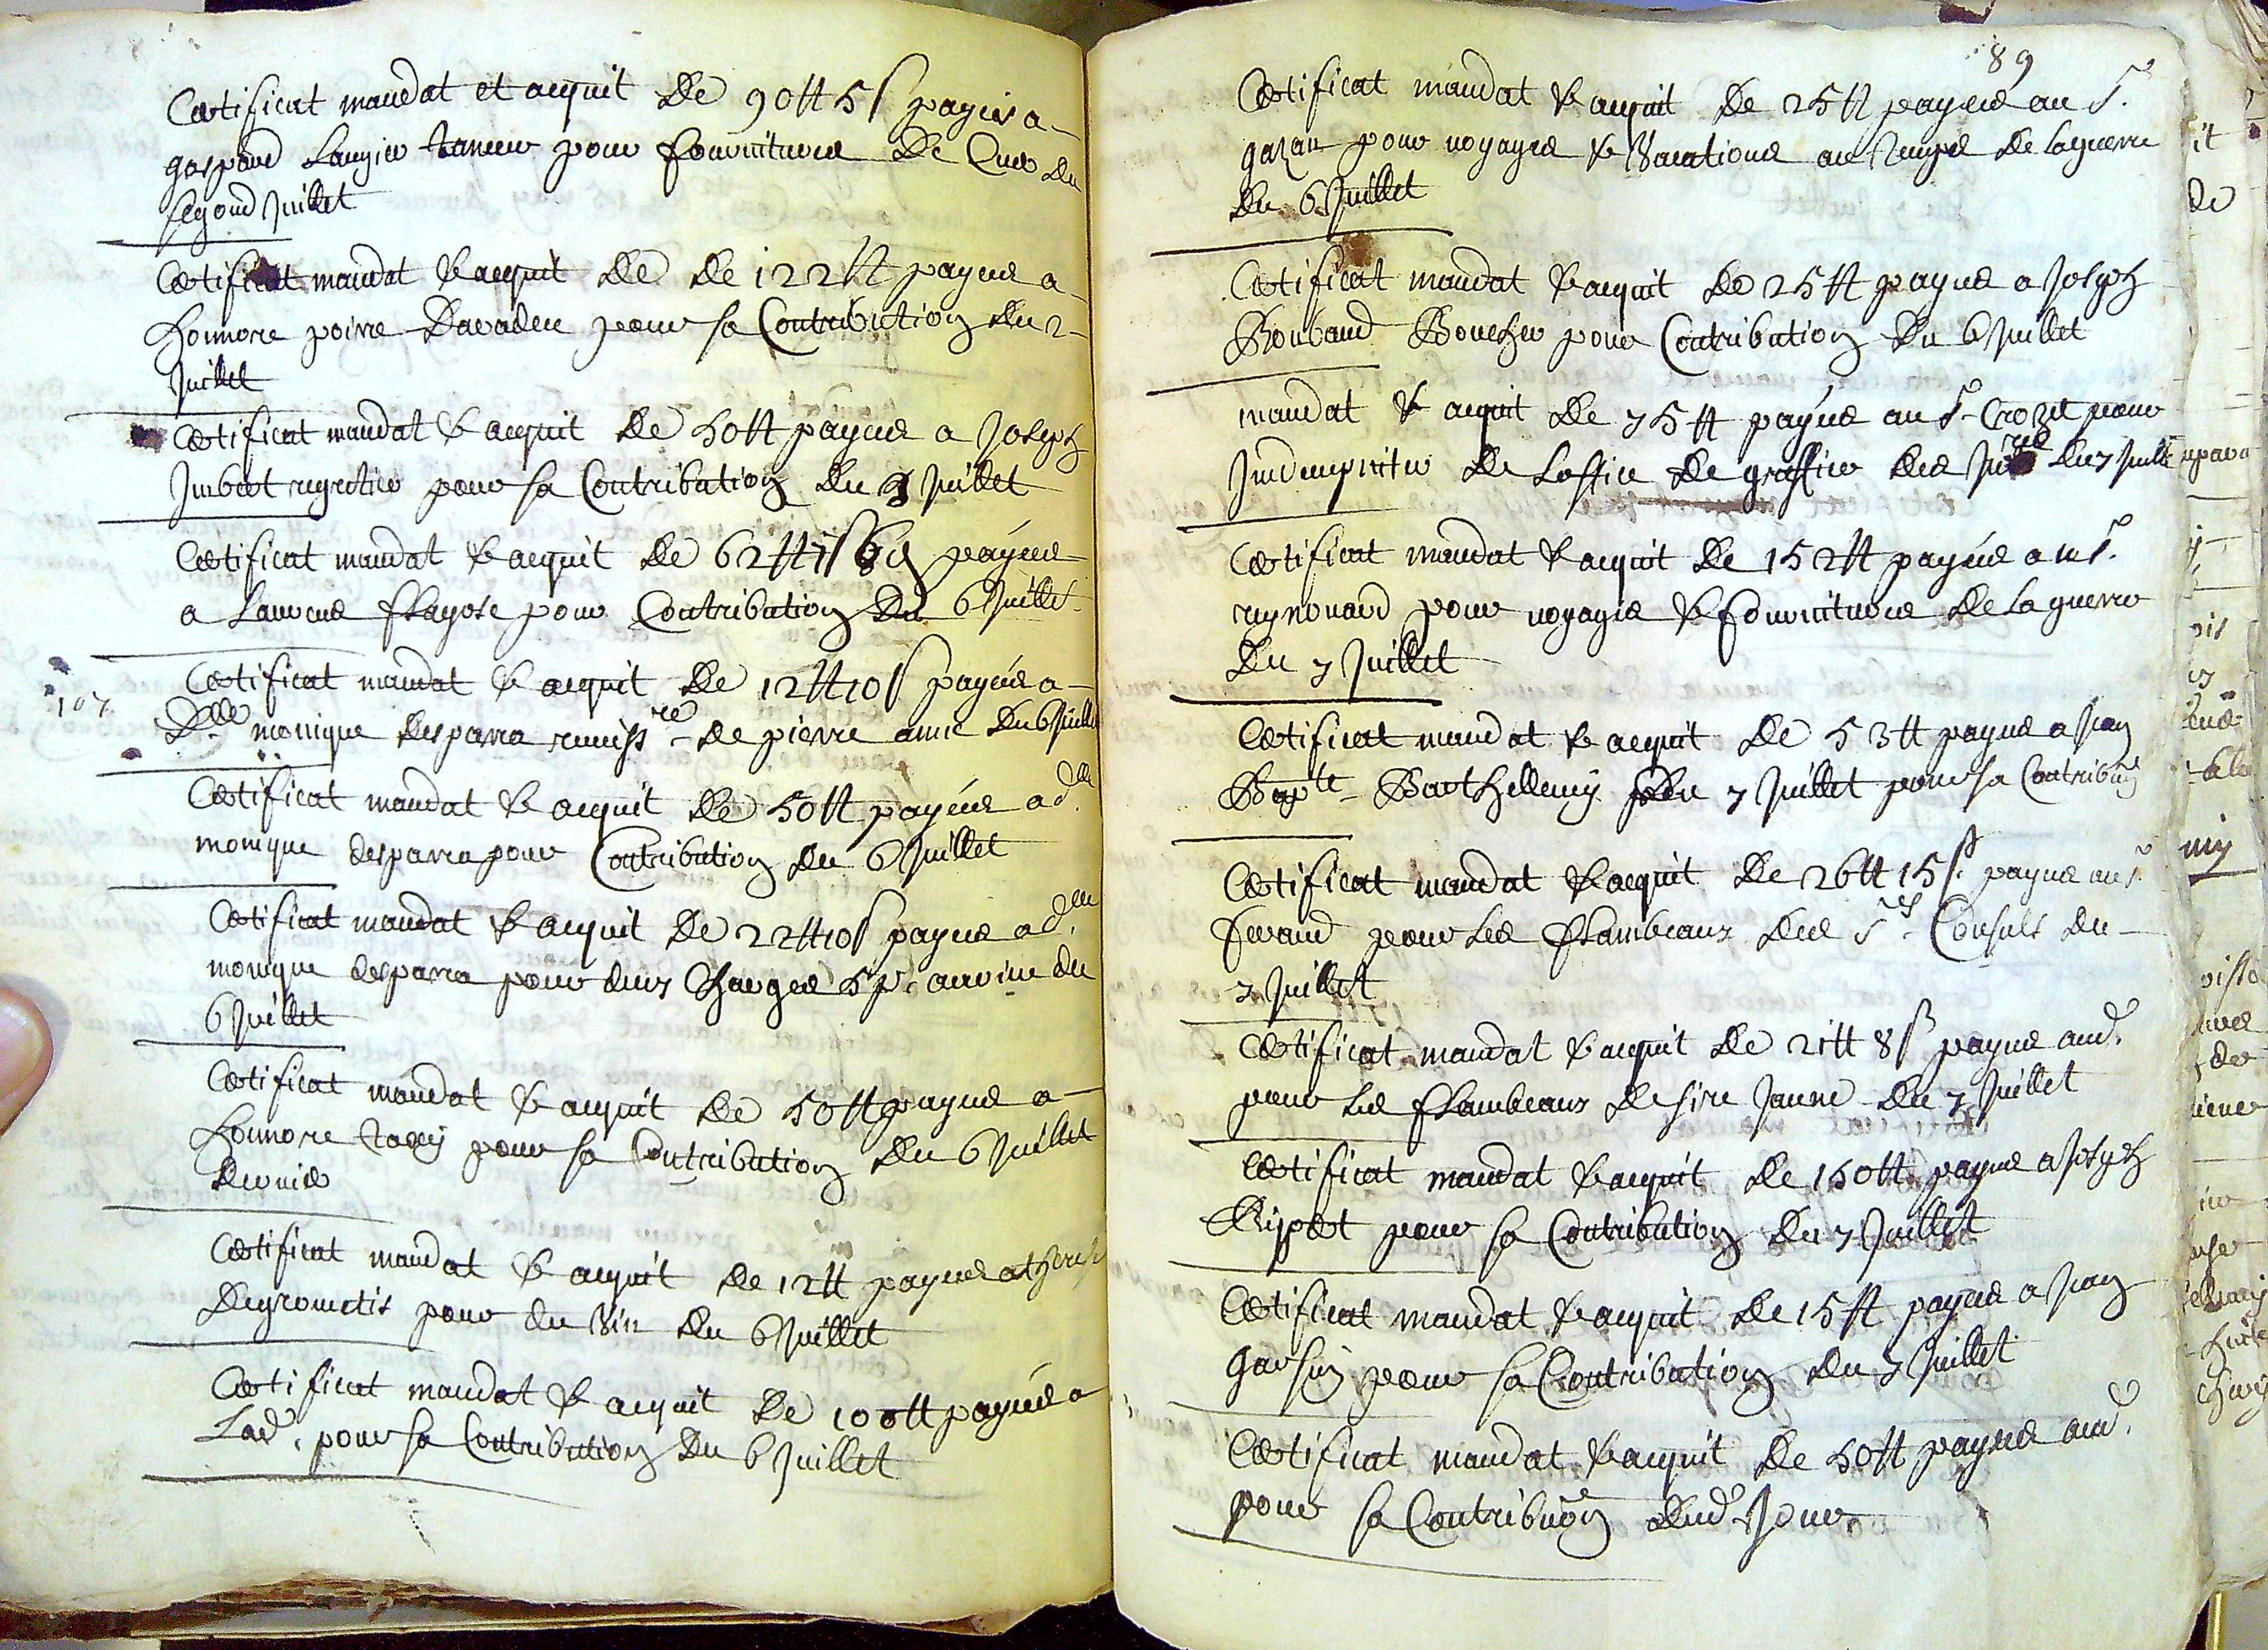 Certificat mandat et acquit De 90 tt 5 s payés a
gaspard Laugier taneur pour fournitures De Cuir du
segond Juillet
Certificat mandat & acquit De De 122 tt payees a
honnore poirre Davaden pour sa Contribution du 2
Juillet
Certificat mandat & acquit De 50 tt payees a Joseph
Jmbert pour sa Contribution Du Juillet
Certificat mandat & acquit De 62 tt payees
a Laurens flayose pour Contribution Du 6 Juillet
107
Certificat mandat & acquit De 12 tt 10 s payées a
Dlle monique desparra De pierre amic Du 6 Juillet
Certificat mandat & acquit De 50 tt payées a dlle
monique desparra pour Contribution Du 6 Juillet
Certificat mandat & acquit De 22 tt 10 s payees a dlle
monique desparra pour deux Charges du
6 Juillet
Certificat mandat & acquit De 50 tt payees a
honnore pour sa Contribution Du 6 Juillet
Certificat mandat & acquit De 12 tt payees a
Degrometis pour du Vin Du 6 Juillet
Certificat mandat & acquit De 100 tt payées a
Lad. pour sa Contribution Du 6 Juillet
89
Certificat mandat & acquit De 25 tt payees au Sr.
gazan pour voyages & Vacations au De la guerre
Du 6 Juillet
Certificat mandat & acquit De 25 tt payees a Joseph
Roubaud Boucher pour Contribution Du 6 Juillet
mandat & acquit De 75 tt payées au Sr Crozet pour
De Loffice De greffier des du 7 Juillet
Certificat mandat & acquit De 152 tt payées a mr.
reynouard pour voyages & fournitures De la guerre
Du 7 Juillet
Certificat mandat & acquit De 53 tt payees a Jean
Bapte Barthellemy Du 7 Juillet pour sa Contribuon
Certificat mandat & acquit De 26 tt 15 s. payees au Sr
feraud pour Les flambeaux Des Srs Consuls du
7 Juillet
Certificat mandat & acquit De 21 tt 8 s payees aud.
pour Les flambeaux De sire Jaune Du 7 Juillet
Certificat mandat & acquit De 150 tt payees a Joseph
Rippert pour sa Contribution Du 7 Juillet
Certificat mandat & acquit De 15 tt payees a Jean
garsin pour sa Contribution Du 7 Juillet
Certificat mandat & acquit De 50 tt payees aud.
pour sa Contribuon Dud. Jour